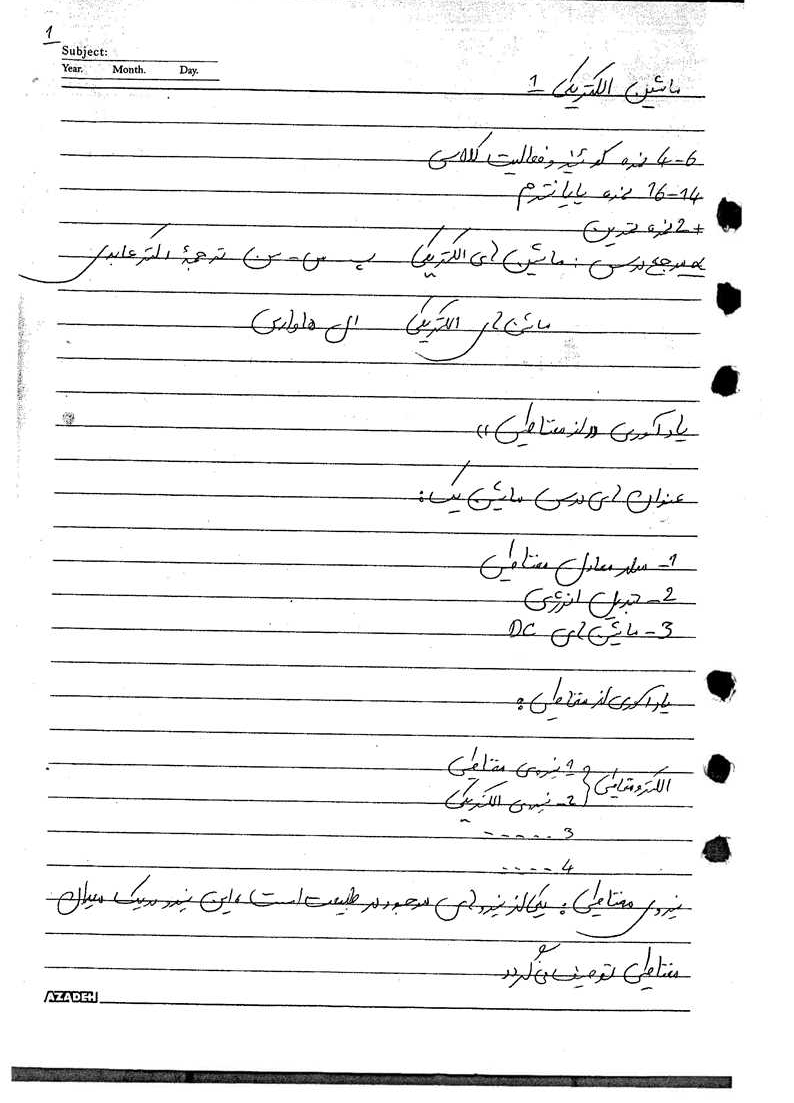 1
Subject:
Year. Month. Day.
ماشین الکتریکی 1
4-6 نمره کوئیز و فعالیت کلاسی
14-16 نمره پایانترم
+2 نمره تمرین
مرجع درس: ماشین های الکتریکی پ-س-سن ترجمهٔ دکتر عابدی
ماشین های الکتریکی
یادآوری «از مغناطیس»
عنوان های درس ماشین یک:
1- معادل مغناطیسی
2- تبدیل انرژی
3- ماشین های DC
یادآوری از مغناطیس:
الکترومغناطیس { 1- نیروی مغناطیسی
2- نیروی الکتریکی
3 -----
4 ----
نیروی مغناطیسی: یکی از نیروهای موجود در طبیعت است، این نیرو در یک میدان
مغناطیسی توصیف می گردد
AZADEH